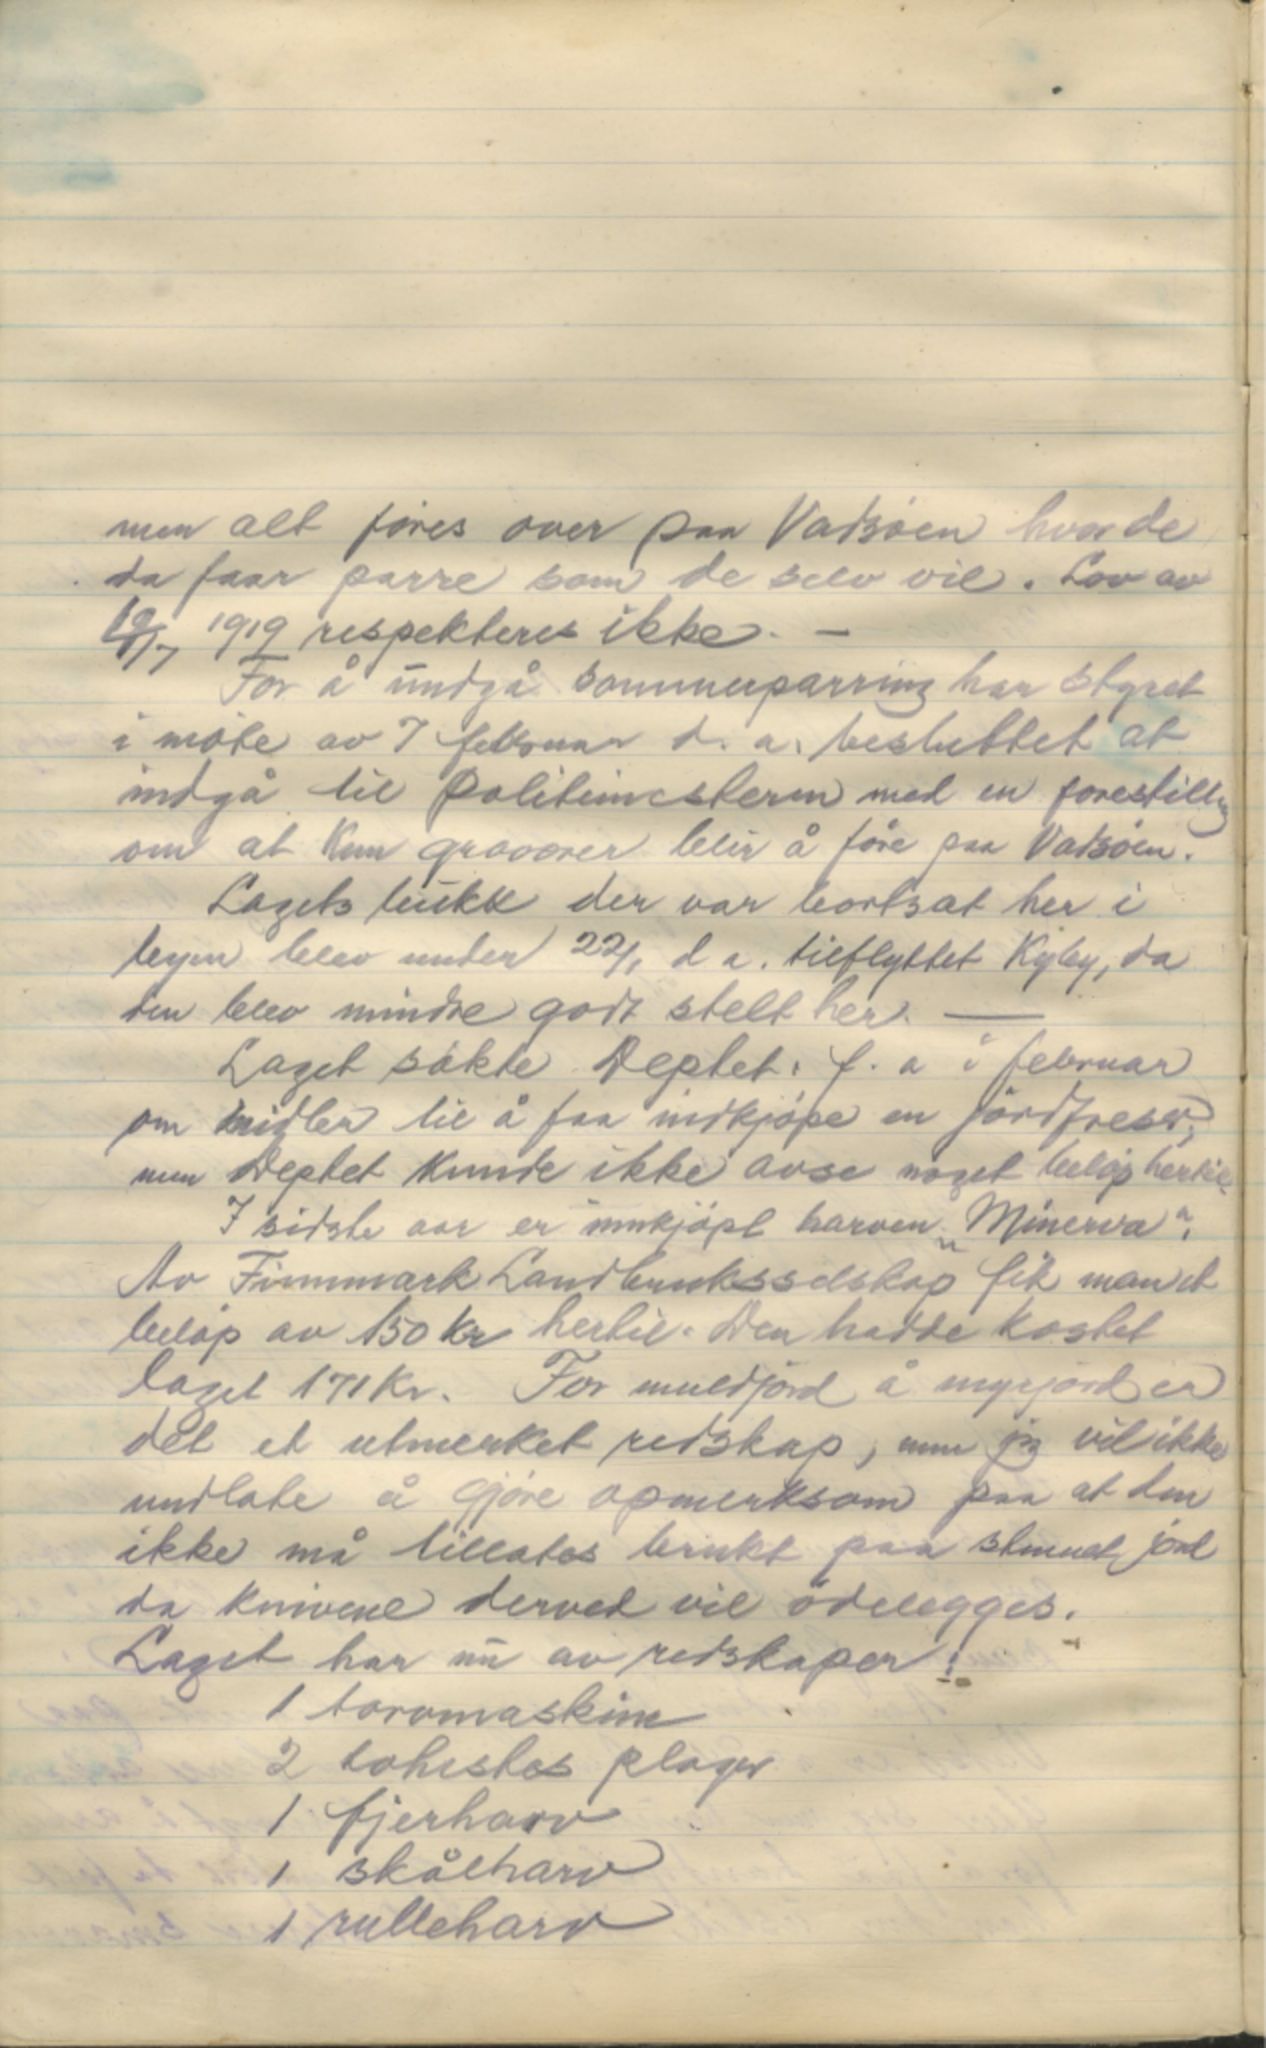 men alt föres over paa Vadsöen hvor de
da faar parre som de selv vil. Lov av
1919 respekteres ikke. —
For å undgå sommerparring har styret
i möte av 7 februar d. a. besluttet at
indgå til Politimesteren med en forestilling
om at kun graoover blir å före paa Vadsöen.
Lagets bukk der var bortsat her i
byen blev under 22/1 d a. tilflyttet Kyby, da
den blev mindre godt stelt her. —
Laget sökte Deptet. f. a i februar
om midler til å faa indkjöpe en jordfreser,
men Deptet kunde ikke avse noget belöp hertil.
I sidste aar er innkjöpt harven „Minerva".
Av Finnmark Landbruksselskap fik man et
belöp av 150 kr hertil. Den hadde kostet
laget 171 kr. For muldjord å myrjord er
det et utmerket redskap, men jeg vil ikke
undlate å gjöre opmerksom paa at den
ikke må tillates brukt paa stenet jord
da knivene derved vil ödelegges.
Laget har nu av redskaper:
1 torvmaskine
2 tohestes ploger
1 fjerharv
1 skålharv
1 rulleharv